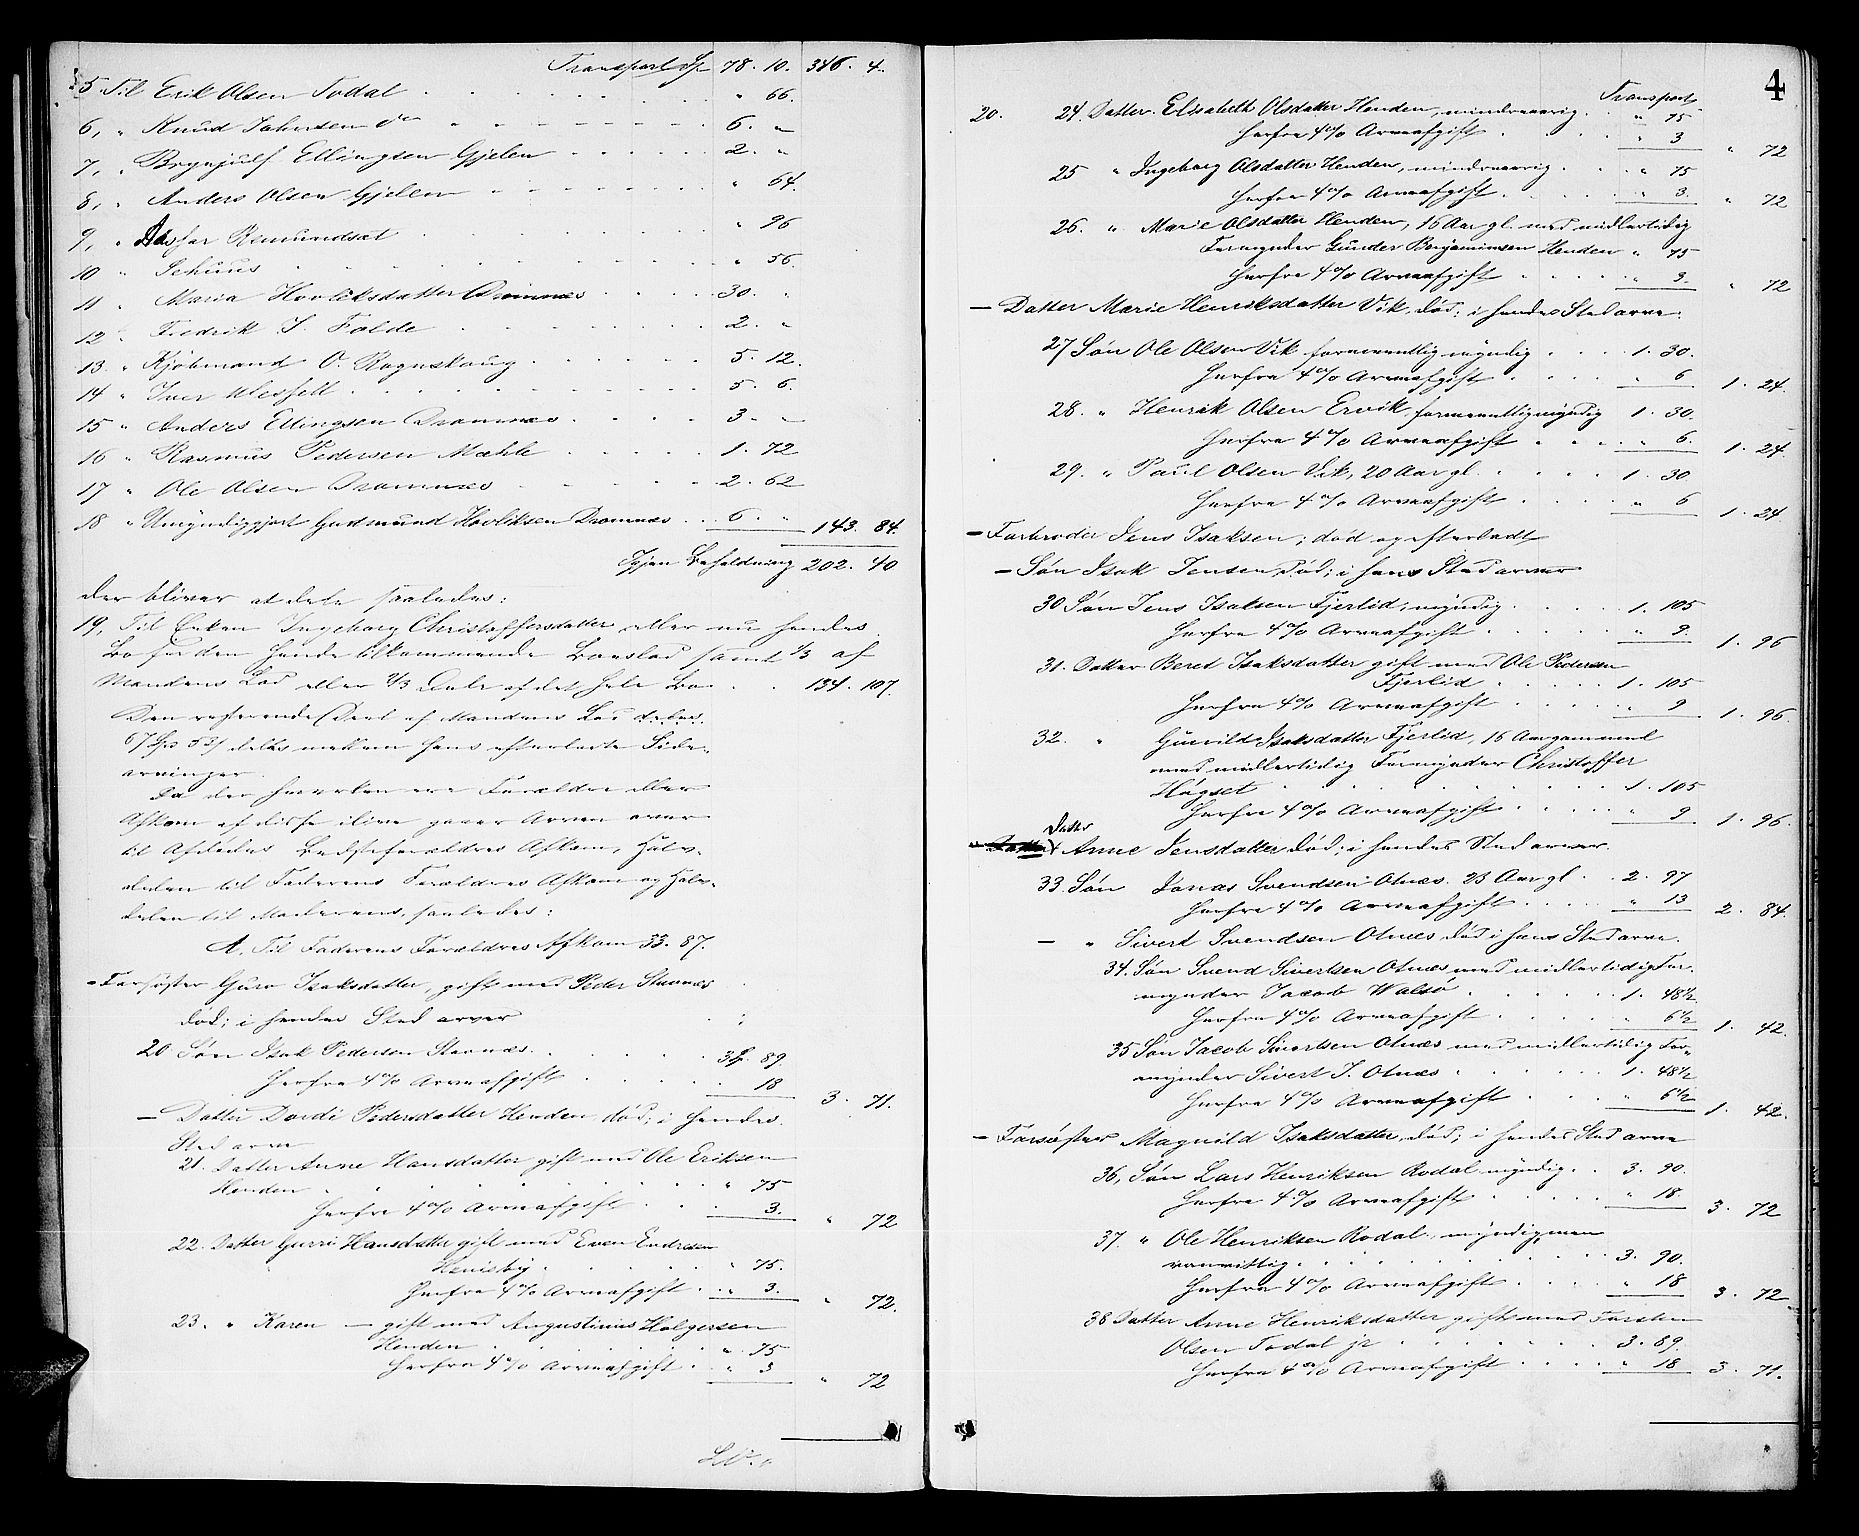 Transport Sp 78. 10. 346. 4.
5 Til Erik Olsen Todal . . . " 66.
6, " Knud Johnsen do . . . 6. "
7, " Brynjulf Ellingsen Gjelen . . . 2. "
8, " Anders Olsen Gjelen . . . " 64.
9, " Remundset . . . " 96
10 " Schuus . . . " 56.
11 " Maria Hovliksdatter Dromnæs . . . 30. "
12 " Fredrik J. Falde . . . 2. "
13 " Kjøbmand O. Rognskoug . . . 5. 12.
14 " Iver Wessell . . . 5. 6.
15 " Anders Ellingsen Dromnæs . . . 3. "
16 " Rasmus Pedersen Mæhle . . . 1. 72
17 " Ole Olsen Dromnæs . . . 2. 62
18 " Umyndiggjort Gudmund Hovliksen Dromnæs . . 6. " 143. 84.
Igjen Beholdning 202. 40
der bliver at dele saaledes:
19, Til Enken Ingeborg Christoffersdatter eller nu hendes
Bo for den hende tilkommende Boeslod samt 1/3 af
Mandens Lod eller 2/3 Dele af det hele Bo . . 134. 107.
Den resterende Deel af Mandens Lod
67 Sp 53 deles mellem hans efterladte Side-
arvinger.
Da der hverken ere Forældre eller
Afkom af disse ilive gaaer Arven over
til Afdødes Bedsteforældres Afkom, Halv-
delen til Faderens Forældres Afkom og Halv-
delen til Moderens, saaledes:
A, Til Faderens Forældres Afkom 33. 87.
- Farsøster Guro Isaksdatter, gift med Peder Stavnæs
død; i hendes Sted arver
20 Søn Isak Pedersen Stavnæs . . . 3 Sp. 89.
Herfra 4% Arveafgift . . . 18 3. 71.
- Datter Dordi Pedersdatter Henden, død; i hendes
Sted arve
21. Datter Anne Hansdatter gift med Ole Eriksen
Henden . . . " 75
Herfra 4% Arveafgift . . . 3. " 72
22. Datter Gurri Hansdatter gift med Even Endresen
. . . " 75.
Herfra 4% Arveafgift . . " 3. " 72.
23. " Karen — gift med Augustinus Holgersen
Henden . . . " 75
Herfra 4% Arveafgift . " 3 " 72
4
Transport
20. 24. Datter Elisabeth Olsdatter Henden, mindreaarig . " 75
Herfra 4% Arveafgift . . . " 3 " 72
25 " Ingeborg Olsdatter Henden, mindreaarig . . " 75
Herfra 4% Arveafgift . . . " 3. " 72
26. " Marie Olsdatter Henden, 16 Aar gl. med midlertidig
Formynder Gunder Benjaminsen Henden " 75
Herfra 4% Arveafgift . . . " 3. " 72
- Datter Marie Henriksdatter Vik, død; i hendes Sted arve:
27 Søn Ole Olsen Vik formentlig myndig . . . 1. 30.
Herfra 4% Arveafgift . . . " 6 1. 24.
28. " Henrik Olsen Ervik formentlig myndig 1. 30.
Herfra 4% Arveafgift . . . " 6. 1. 24.
29. " Paul Olsen Vik, 20 Aar gl. . . . 1. 30
Herfra 4% Arveafgift . . . " 6 1. 24.
- Farbroder Jens Isaksen; død og efterladt
- Søn Isak Jensen, død; i hans Sted arver
30 Søn Jens Isaksen Fjerlid, myndig . . . 1. 105
Herfra 4% Arveafgift . . . " 9. 1. 96
31. Datter Beret Isaksdatter gift med Ole Pedersen
Fjerlid . . . 1. 105
Herfra 4% Arveafgift . . . " 9 1. 96.
32. " Gunild Isaksdatter Fjerlid, 16 Aar gammel
med midlertidig Formynder Christoffer
Høgset . . . 1. 105
Herfra 4% Arveafgift . . . " 9 1. 96.
Datter
- Anne Jensdatter død; i hendes Sted arver.
33. Søn Jonas Svendsen Otnæs. 23 Aar gl. . . 2. 97
Herfra 4% Arveafgift . . . " 13 2. 84.
- " Sivert Svendsen Otnæs, død i hans Sted arve.
34. Søn Svend Sivertsen Otnæs med midlertidig For-
mynder Jacob Walsø . . . 1. 48 1/2
Herfra 4% Arveafgift . . . " 6 1/2 1. 42.
35 Søn Jacob Sivertsen Otnæs med midlertidig For-
mynder Sivert J. Otnæs . . . 1. 48 1/2
Herfra 4% Arveafgift . . . 6 1/2 1. 42.
- Farsøster Magnild Isaksdatter, død; i hendes Sted arve
36, Søn Lars Henriksen Rodal myndig . . 3. 90.
Herfra 4% Arveafgift . . . " 18. 3. 72
37. " Ole Henriksen Rodal, myndig men
vanvittig . . . 3. 90.
Herfra 4% Arveafgift . . . " 18 3. 72
38 Datter Anne Henriksdatter gift med Torsten
Olsen Todal jr . . . 3. 89.
Herfra 4% Arveafgift . . . " 18 3. 71.